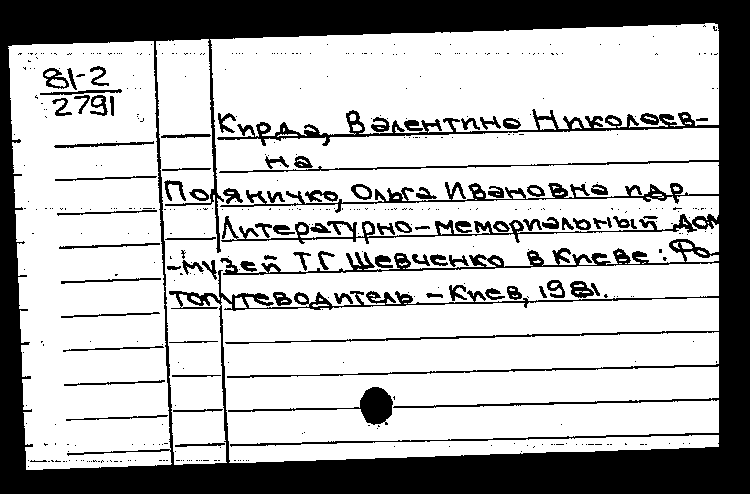 81-2
2791
Кирда, Валентина Николаев-
на.
Поляничко, Ольга Ивановна и др.
Литературно-мемориальный дом
-музей Т.Г. Шевченко в Киеве: Фо-
топутеводитель - Киев, 1981.